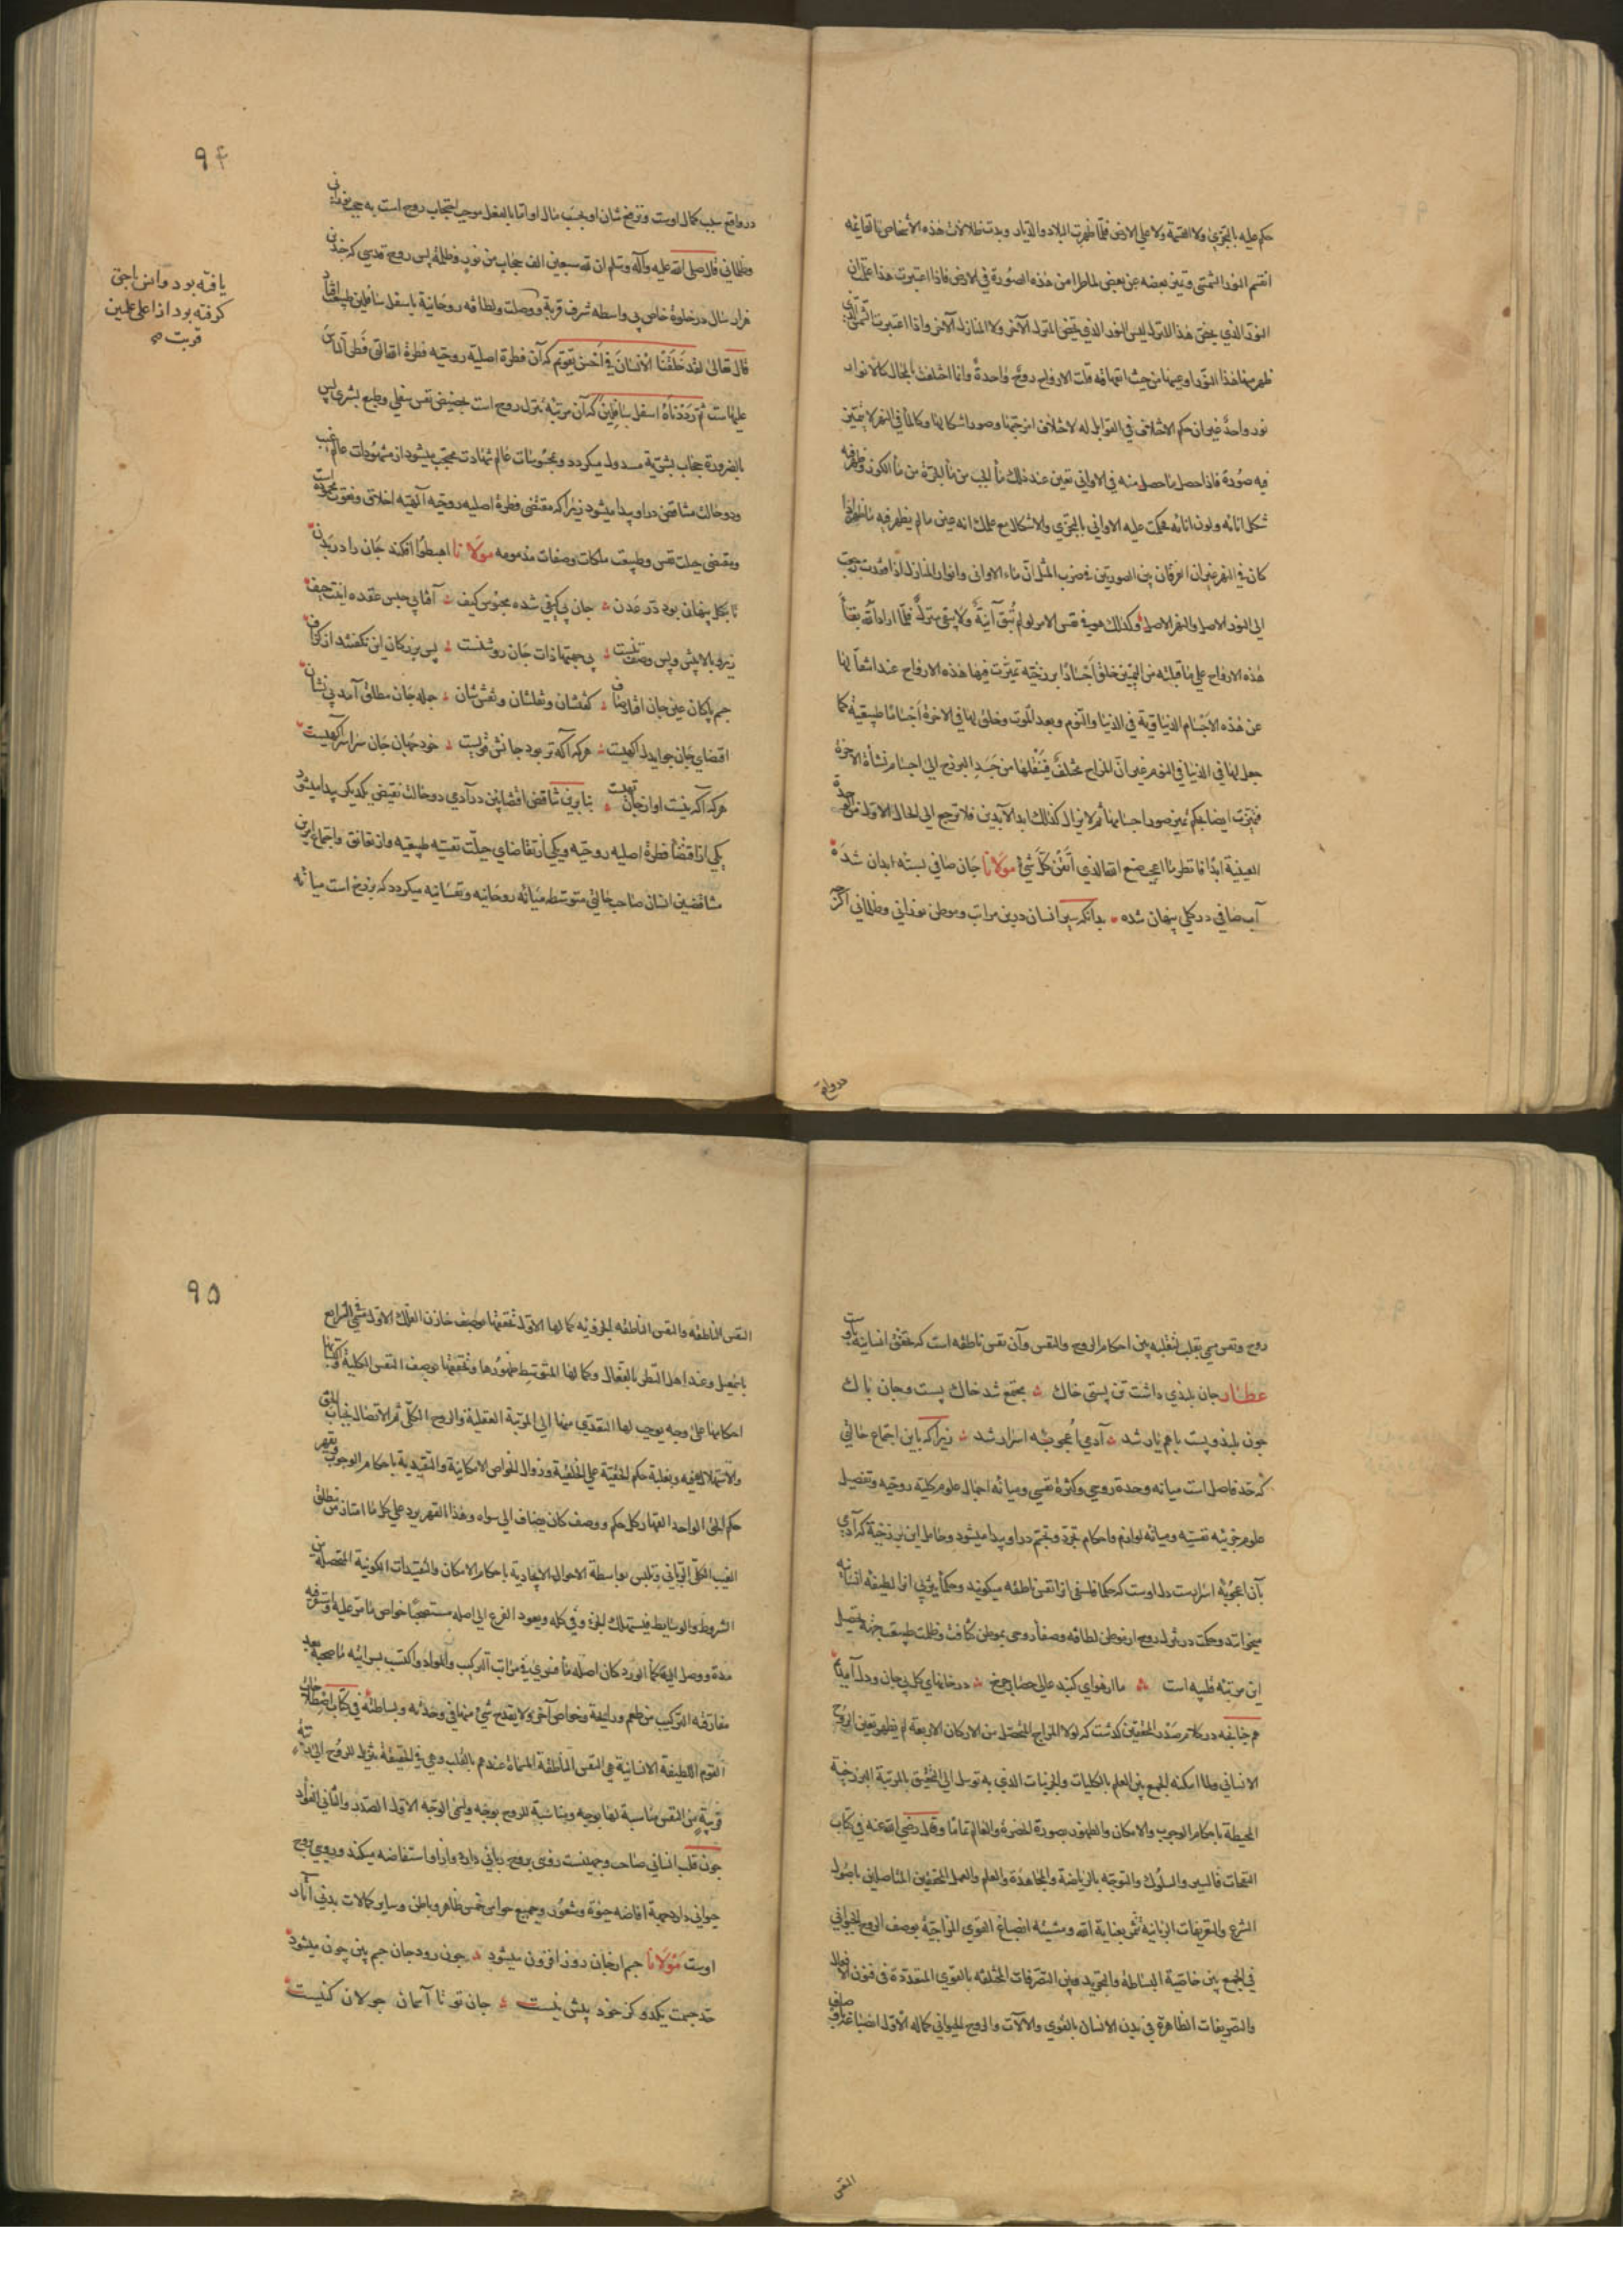 حکم علیه بالتجزی ولا القسمة ولا علی الارض فلما ظهرت البلاد والدیار وبدت ظلالات هذه الأشخاص القائمة
انقسم النور الشمسی وتمیز بعضه عن بعض لما طرا من هذه الصورة فی الارض فاذا اعتبرت هذا علمت ان
النور الذی یخص هذا المنزل لیس النور الذی یخص المنزل الآخر ولا المنازل الآخر واذا اعتبرت الشمس التی
ظهر منها هذا النور وعینها من حیث انفهاقه قلت الارواح روح واحدة وانما اختلفت بالمحال کالانوار
نور واحد غیر ان حکم الاختلاف فی القوابل له لاختلاف امزجتها وصور اشکالها وکالماء فی النهر لا یتمیز
فیه صورة فاذا حصل ما حصل منه فی الاوانی تعین عند ذلک ماء الحب من ماء الجرة من ماء الکوز وظهر فیه
شکل انائه ولون انائه فحکمت علیه الاوانی بالتجزی والاشکال مع علمک انه عین ما لم یظهر فیه شکل اذا
کان فی النهر غیر ان الفرقان بین الصورتین فی ضرب المثل ان ماء الاوانی وانوار المنازل اذا فقدت رجعت
الی النور الاصل والنهر الاصل وکذلک هو فی نفس الامر لو لم تبق آنیة ولا یبقی منزل فلما اراد الله بقاء
هذه الارواح علی ما قبلته من التمییز خلق اجسادا برزخیة تمیزت فیها هذه الارواح عند انتقالها
عن هذه الاجسام الدنیاویة فی الدنیا والنوم وبعد الموت وخلق لها فی الاخرة اجساما طبیعیة کما
جعل لها فی الدنیا فی النوم غیر ان المزاج مختلف فینقلها من جسد البرزخ الی اجسام نشأة الاخرة
فتمیزت ایضا بحکم تمیز صور اجسامها ثم لا یزال کذلک ابد الآبدین فلا ترجع الی الحال الاول من الوحدة
العینیة ابدا فانظر ما اعجب صنع الله الذی اتقن کل شیء مولانا جان صافی بسته ابدان شده
آب صافی در گلی پنهان شده بدانکه سیر انسان درین مراتب وموطن نورانی وظلمانی اگرچه
درواقع
۹۴
در واقع سبب کمال اوست وترفع شان او بحسب مآل او اما بالفعل موجب احتجاب روح است به حجب نورانی
وظلمانی قال صلی الله علیه وآله وسلم ان لله سبعین الف حجاب من نور وظلمة پس روح قدسی که چندین
هزار سال در خلوة خاص بی واسطه شرف قربة ووصلت ولطافه روحانیة باسفل سافلین طبیعت افتاد
قال تعالی لقد خلقنا الانسان فی احسن تقویم که آن فطرة اصلیه روحیه فطرة الله التی فطر الناس
علیهاست ثم رددناه اسفل سافلین که آن مرتبه تنزل روح است بحضیض نفس سفلی وطبع بشری پس
بالضرورة بحجاب بشریة مسدول میگردد وبمحسوسات عالم شهادت محتجب میشود از مشهودات عالم غیب
ودو حالت متناقض در او پیدا میشود زیرا که مقتضی فطرة اصلیه روحیه آلهیه اخلاق ونعوت محموده است
ومقتضی جبلت نفس وطبیعت ملکات وصفات مذمومه مولانا اهبطوا افکند جان را در بدن
تا بگل پنهان بود در عدن جان بی کیفی شده محبوس کیف آفتابی حبس عقده اینت حیف
زیر بالا پیش وپس وصف تنست بی جهتها ذات جان روشنست پس بزرگان این نگفتند از گزاف
جسم پاکان عین جان افتاد صاف گفتشان ونفسشان ونقششان جمله جان مطلق آمد بی نشان
اقتضای جان چو ایدل آگهیست هرکه آگه تر بود جانش قویست خود جهان جان سراسر آگهیست
هرکه آگه نیست او از جان تهیست بنا برین تناقض اقتضاین در آدمی دو حالت نقیض یکدیگر پیدا میشود
یکی از اقتضا فطرة اصلیه روحیه ویکی از تقاضای جبلت نفسیه طبیعیه واز تعانق واجتماع این
متناقضین انسان صاحب حالتی متوسطه میانه روحانیه ونفسانیه میگردد که برزخ است میانه
یافته بود وانس باحق
گرفته بود از اعلی علیین
قربت صح
روح ونفس سمی بقلب لتقلبه بین احکام الروح والنفس وآن نفس ناطقه است که محقق انسانیة باوست
عطار جان بلندی داشت تن پستی خاک مجتمع شد خاک پست وجان پاک
چون بلند وپست باهم یار شد آدمی اعجوبه اسرار شد زیرا که باین اجتماع حالتی
که حد فاصل است میانه وحدة روحی وکثرة نفسی ومیانه اجمال علوم کلیه روحیه وتفصیل
علوم جزئیه نفسیه ومیانه لوازم واحکام تجرد وتجسم در او پیدا میشود وحامل این برزخیة که آدمی
بآن اعجوبه اسرارست دل اوست که حکما فلسفی او را نفس ناطقه میگویند وحکماء یزبی او را لطیفه انسانیه
میخوانند وحکمت در نزول روح از موطن لطافه وصفاء روحی بموطن کثافت وظلمت طبیعت جهة تحصیل
این مرتبه قلبیه است ما از هوای گنبد عالی حصار چرخ در خانهای گل پی جان ودل آمدیم
هم چنانچه در کلام صدر المحققین گذشت که لولا المزاج المتحصل من الارکان الاربعة لم یظهر تعین الروح
الانسانی ولما امکنه الجمع بین العلم بالکلیات والجزئیات الذی به توسل الی التحقق بالمرتبة البرزخیة
المحیطة باحکام الوجوب والامکان والظهور بصورة الحضرة والعالم تماما وقال رضی الله عنه فی کتاب
النفحات فالسیر والسلوک والتوجه بالریاضة والمجاهدة والعلم والعمل المحققین المتاصلین باصول
الشرع والتعریفات الربانیة تثمر بعنایة الله ومشیئته انصباغ القوی المزاجیة بوصف الروح الحیوانی
فی الجمع بین خاصیة البساطة والتجرید وبین التصرفات المختلفه بالقوی المتعددة فی فنون الافعال
والتصریفات الظاهرة فی بدن الانسان بالقوی والآلات والروح الحیوانی کماله الاول انصباغه باوصاف
النفس
۹۵
النفس الناطقة والنفس الناطقة الجزویة کمالها الاول تحققها بوصف خازن الفلک الاول سمی فی الشرایع
باسمعیل وعند اهل النظر بالفعال وکمالها المتوسط ظهورها وتحققها بوصف النفس الکلیة واکتسابها
احکامها علی وجه یوجب لها التعدی منها الی المرتبة العقلیة والروح الکلی ثم الاتصال بجناب الحق
والاستهلاک فیه وبغلبة حکم الحقیة علی الخلقیة وزوال الخواص الامکانیة والتقییدیة باحکام الوجوب وبقهر
حکم الحق الواحد القهار کل حکم ووصف کان یضاف الی سواه وهذا القهر یرد علی کل ما امتاز من مطلق
الغیب الکلی الربانی وتلبس بواسطة الاحوال الایجادیة باحکام الامکان والتقییدات الکونیة المتحصلة من
الشروط والوسایط فیستهلک الجزء فی کله ویعود الفرع الی اصله مستصحبا خواص ما مر علیه واستقر فیه
مدة ووصل الیه کماء الورد کان اصله ماء فسری فی مراتب الترکیب والمواد واکتسب بسرایته ما صحبه بعد
مفارقته الترکیب من طعم ورایحة وخواص آخر ولا یقدح شیء منها فی وحدته وبساطته فی کتاب اصطلاحات
القوم اللطیفة الانسانیة هی النفس الناطقة المسماة عندهم بالقلب وهی فی الحقیقة تنزل الروح الی رتبة
قریبة من النفس مناسبة لها بوجه ومناسبة للروح بوجه ویسمی الوجه الاول الصدر والثانی الفؤاد
چون قلب انسانی صاحب وجهینست روی بروح ربانی دارد واز او استفاضه میکند وروی بروح
حیوانی دارد جهة افاضه حیوة وشعور وجمیع حواس خمس ظاهر وباطن وسایر کمالات بدنی آثار
اوست مولانا جسم از جان روز افزون میشود چون رود جان جسم بین چون میشود
حد جسمت یکدو گز خود بیش نیست جان تو تا آسمان جولان کنیست